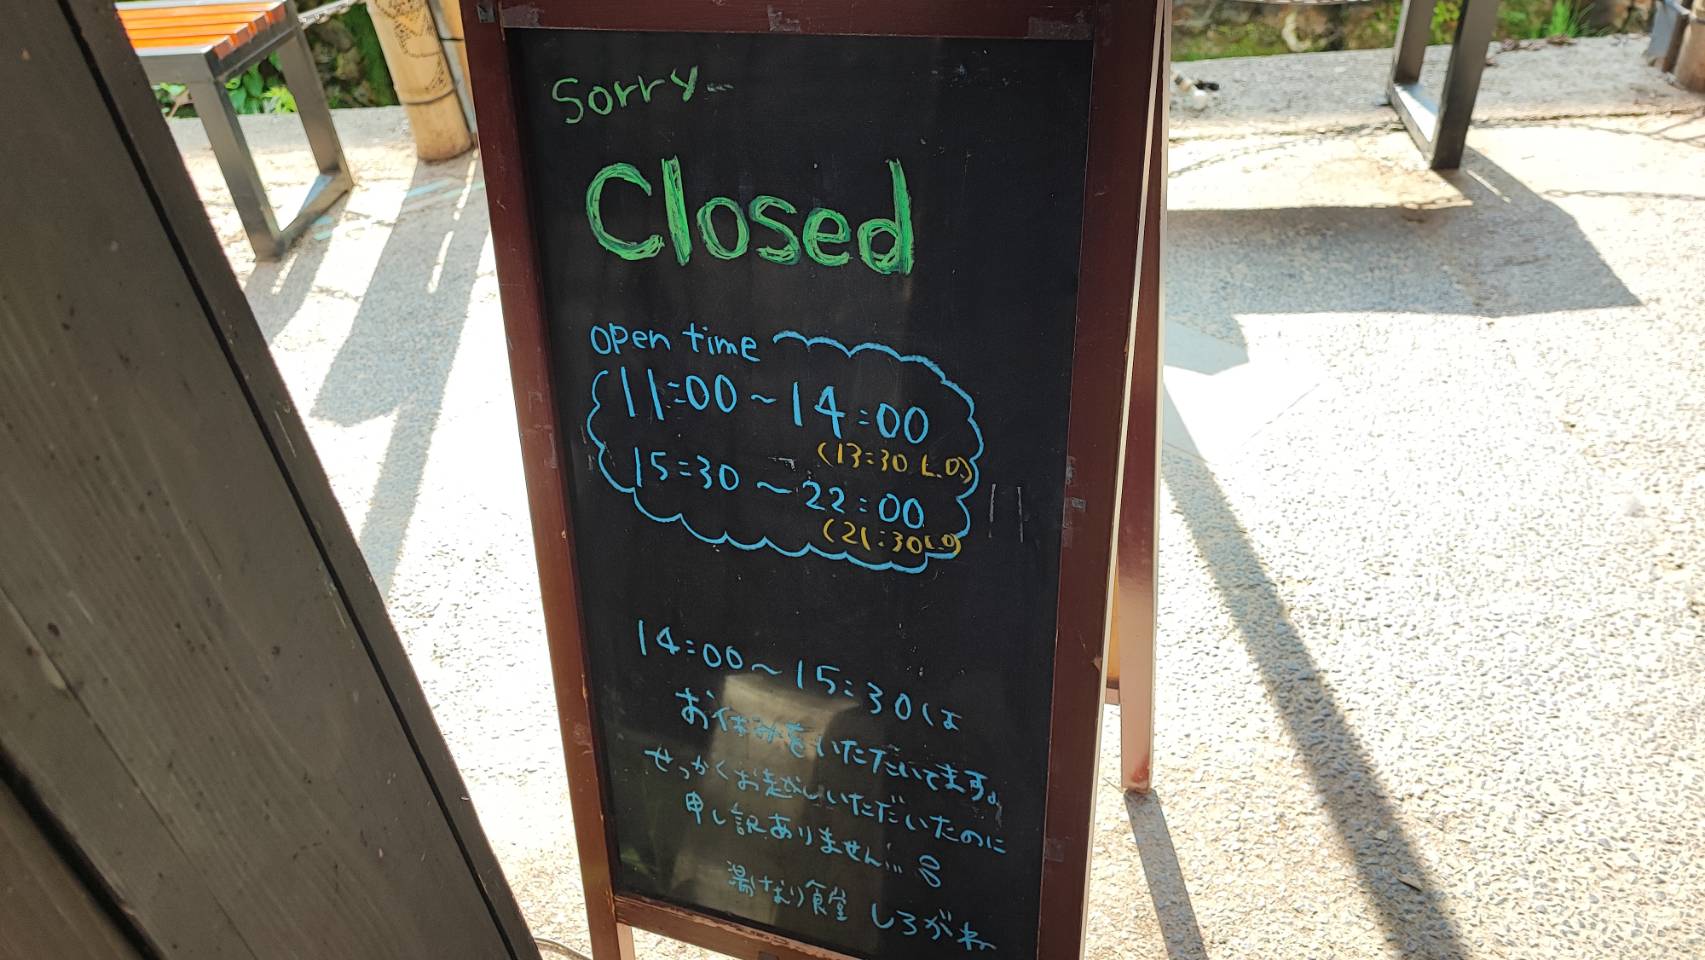 Sorry...
Closed
open time
11:00~14:00
(13:30 L.O.)
15:30~22:00
(21:30 L.O)
14:00~15:30は
お休みをいただいてます。
せっかくお越しいただいたのに
申し訳ありません...
湯けむり食堂 しろがね